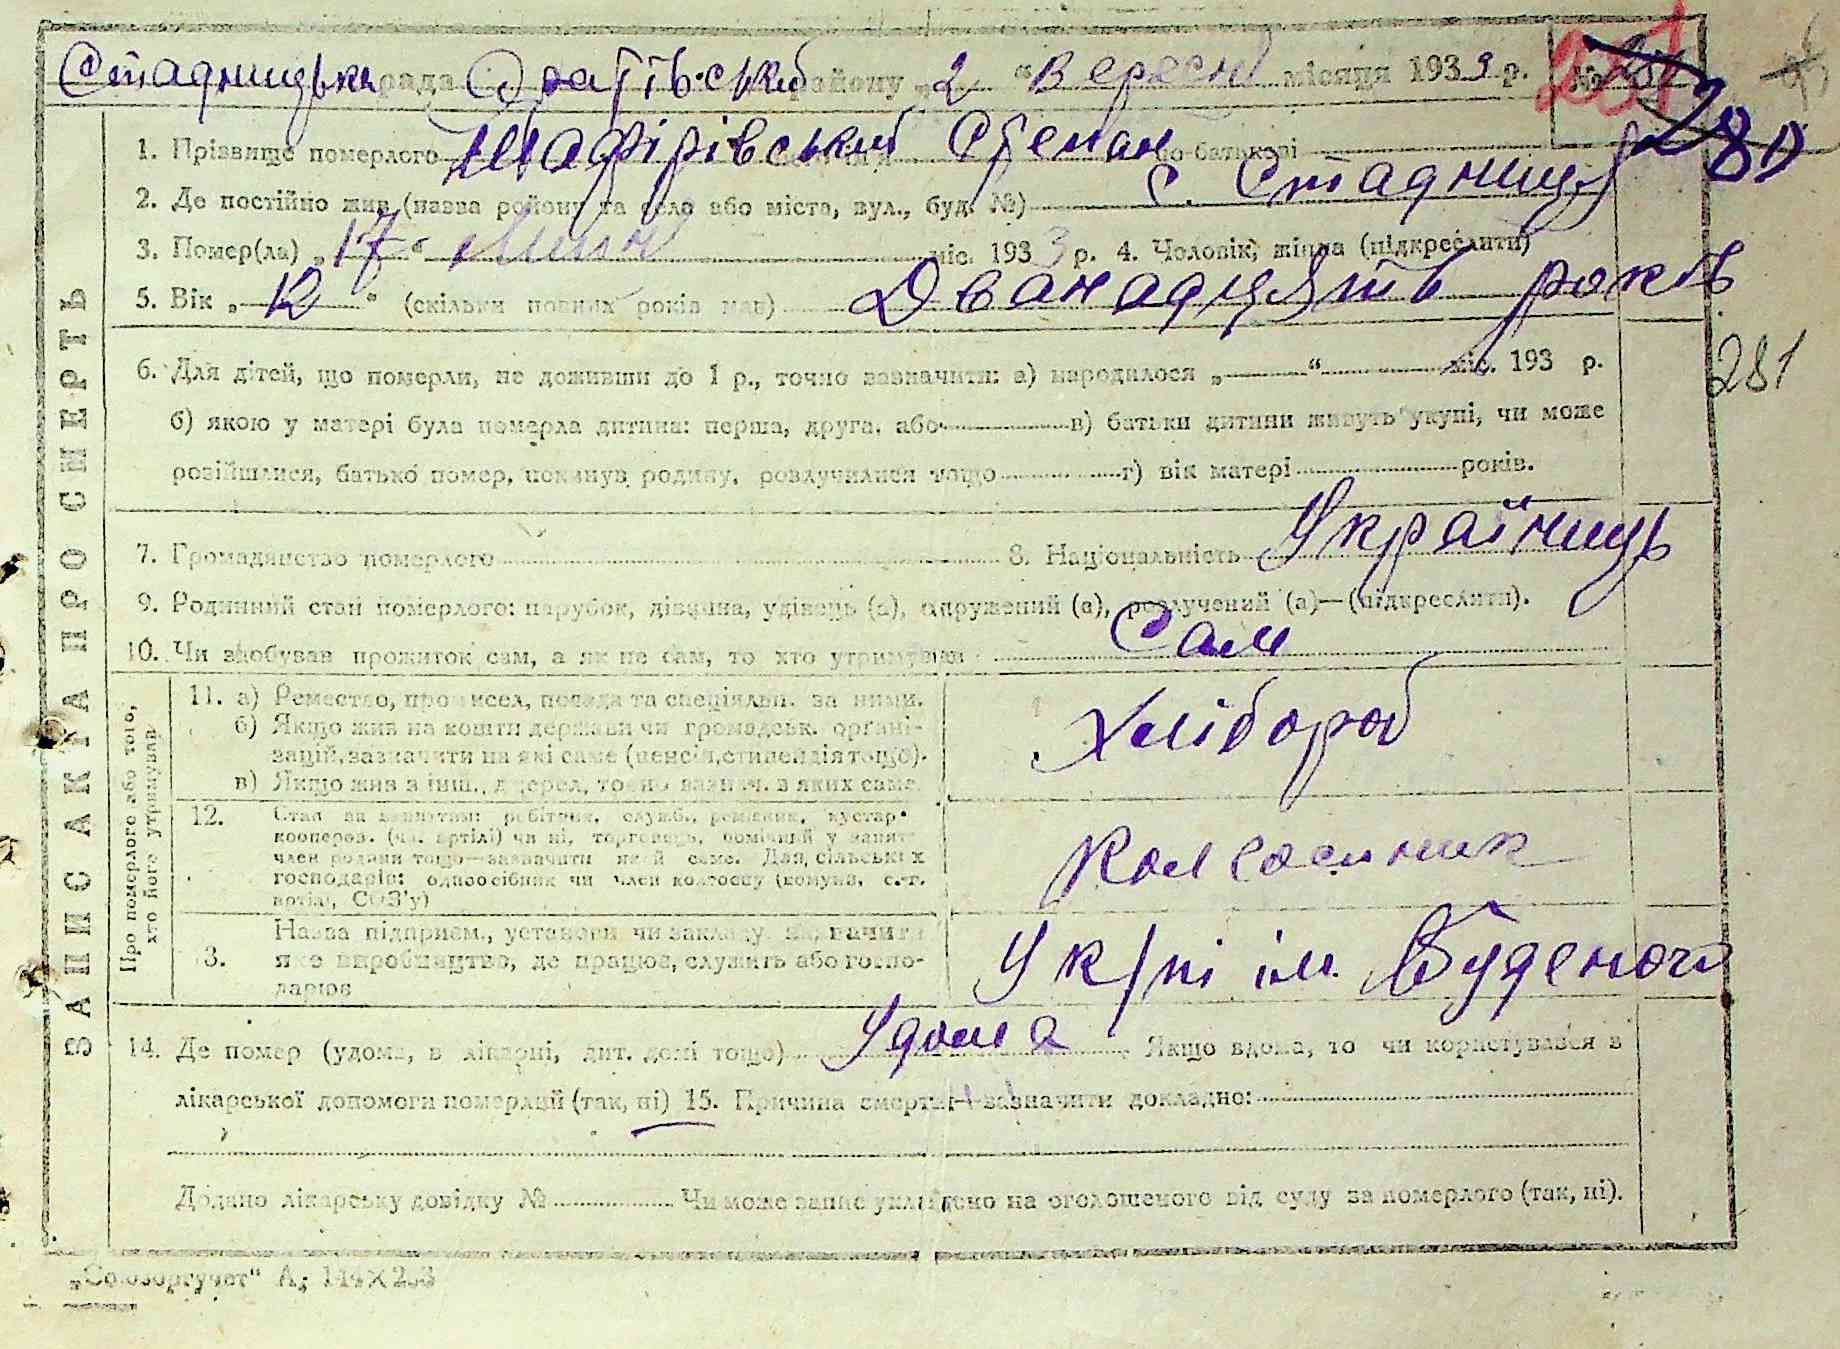 Стадницька рада Оратівський району „2“ Вересня місяця 1933 р. №
280
1. Прізвище померлого Шафірівський Степан по батькові
2. Де постійно жив (назва району та село або міста, вул., буд. №) с. Стадниця
3. Помер(ла) „17“ Липня міс. 1933 р. 4. Чоловік, жінка (підкреслити)
5. Вік „12“ (скільки повних років мав) Дванадцять років
6. Для дітей, що померли, не доживши до 1 р., точно зазначити: а) народилося „ “ міс. 193 р.
281
б) якою у матері була померла дитина: перша, друга, або в) батьки дитини живуть укупі, чи може
розійшлися, батько помер, покинув родину, розлучилися тощо г) вік матері років.
7. Громадянство померлого 8. Національність Українець
9. Родинний стан померлого: парубок, дівчина, удівець (а), одружений (а), розлучений (а)—(підкреслити).
10. Чи здобував прожиток сам, а як не сам, то хто утримував Сам
ЗАПИС АКТА ПРО СМЕРТЬ
Про померлого або того, хто його утримував
11. а) Ремество, промисел, посада та спеціяльн. за ними.
б) Якщо жив на кошти держави чи громадськ. органі-
зацій, зазначити на які саме (пенсія, стипендія тощо).
в) Якщо жив з інш. джерел, точно зазнач. з яких саме.
Хлібороб
12. Стан за заняттям: робітник, службов., ремісник, кустар-
кооперов. (чл. артілі) чи ні, торговець, помічний у занят.
член родини тощо—зазначити який саме. Для сільських
господарів: одноосібник чи член колгоспу (комуни, с.-г.
артілі, СОЗ'у)
Колгоспник
13. Назва підприєм., установи чи закладу, зазначити
яке виробництво, де працює, служить або госпо-
дарює
У к/пі ім. Буденого
14. Де помер (удома, в лікарні, дит. домі тощо) Удома. Якщо вдома, то чи користувався в
лікарської допомоги померлий (так, ні) 15. Причина смерти—зазначити докладно:
Додано лікарську довідку № Чи може запис укладено на оголошеного від суду за померлого (так, ні).
„Союзоргучет“ А, 144×203